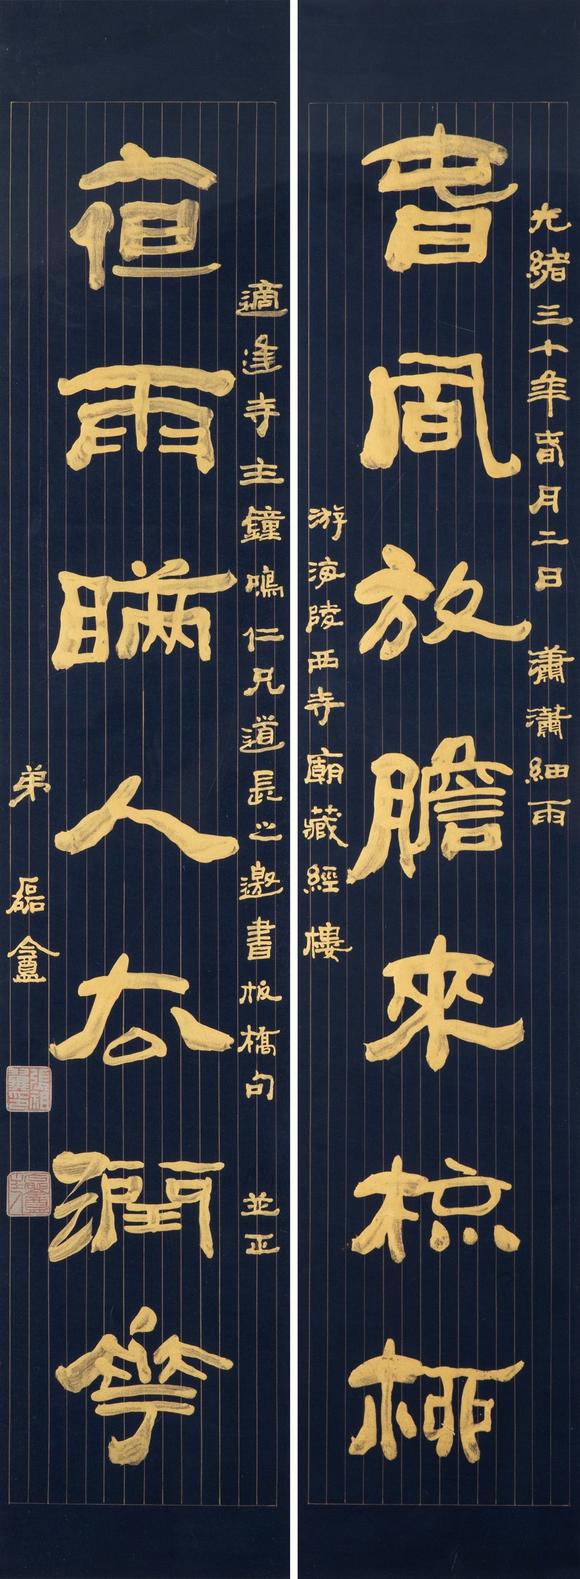 光緒三十年旾月二日 瀟瀟細雨
旾風放膽來梳桺
游海陵西寺廟藏經樓
適逢寺主鐘鳴仁兄道長之邀書板橋句 並正
亱雨瞞人厺潤華
弟 磊盦
張祖翼印